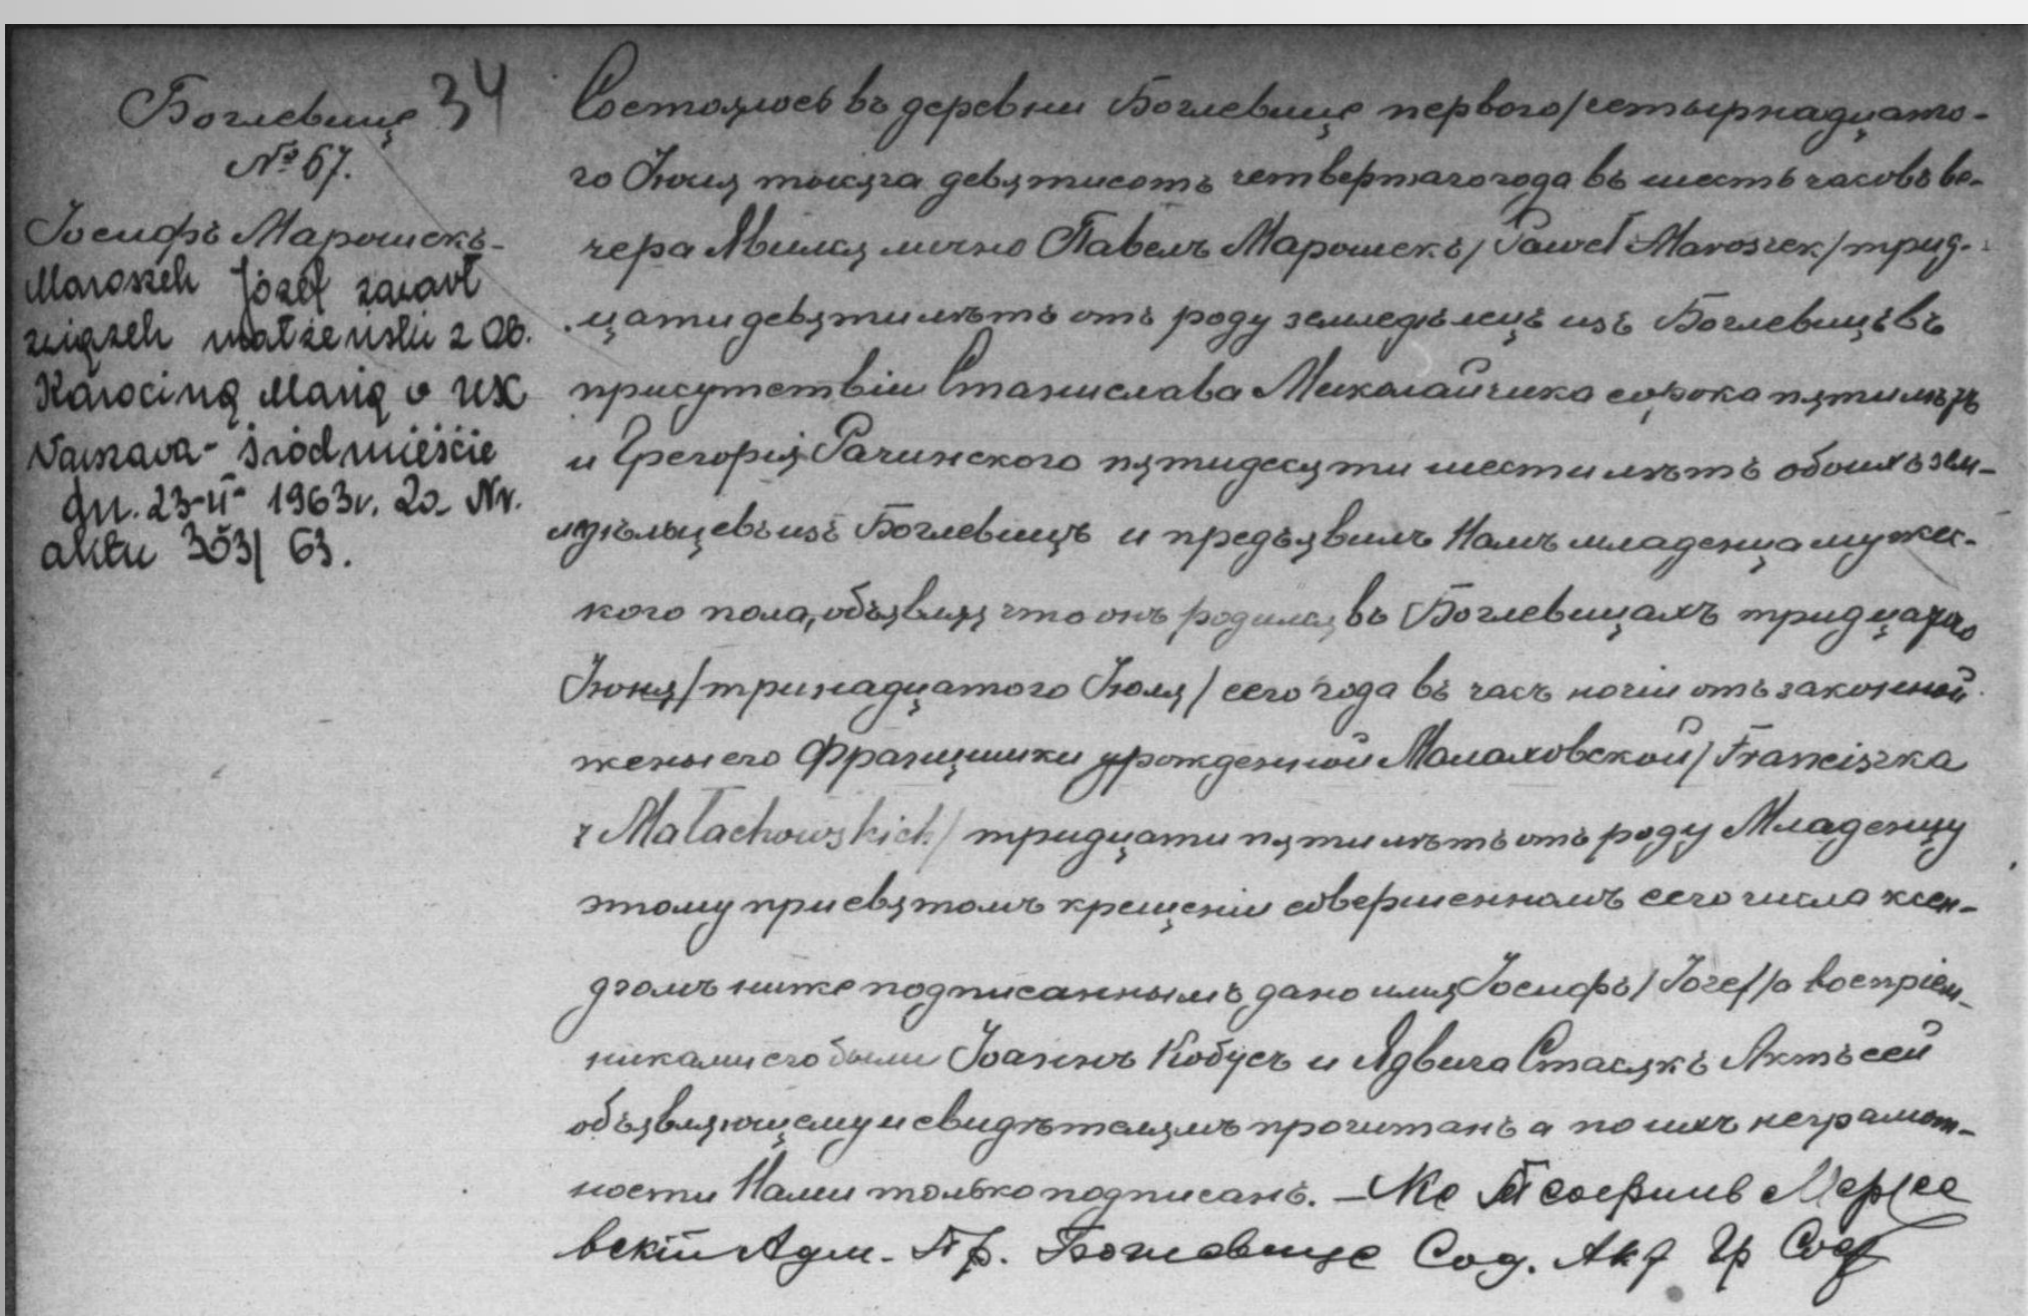 Боглевице 34
№ 67.
Іосифъ Марошекъ
Maroszek Józef zawarł
związek małżeński z Ob.
Karociną Marią w USC
Warszawa-Śródmieście
dn. 23-II- 1963r. Za Nr.
aktu 303/63.
Состоялось въ деревни Боглевице перваго/четырнадцато-
го Іюля тысяча девятисотъ четвертаго года въ шесть часовъ ве-
чера Явился лично Павелъ Марошекъ /Paweł Maroszek/ трид-
цати девяти лѣтъ отъ роду земледѣлецъ изъ Боглевицъ въ
присутствіи Станислава Миколайчика сорока пяти лѣтъ
и Грегорія Рачинского пятидесяти шести лѣтъ обоихъ зем-
ледѣльцевъ изъ Боглевицъ и предъявилъ Намъ младенца мужес-
кого пола, объявляя что онъ родился въ Боглевицахъ тридцатаго
Іюня/тринадцатого Іюля/ сего года въ часъ ночи отъ законной
жены его Францишки урожденной Малаховской/Franciszka
z Małachowskich/ тридцати пяти лѣтъ отъ роду Младенцу
этому при святомъ крещеніи совершенномъ сего числа ксен-
дзомъ нижеподписаннымъ дано имя Іосифъ/Józef/а воспріем-
никами его были Іоаннъ Кобусъ и Ядвига Стасякъ Актъ сей
объявляющему и свидѣтелямъ прочитанъ а по ихъ неграмот-
ности Нами только подписанъ. – Кс
вскій Адм. Пр. Боглевице Сод. Акт Гр Сост